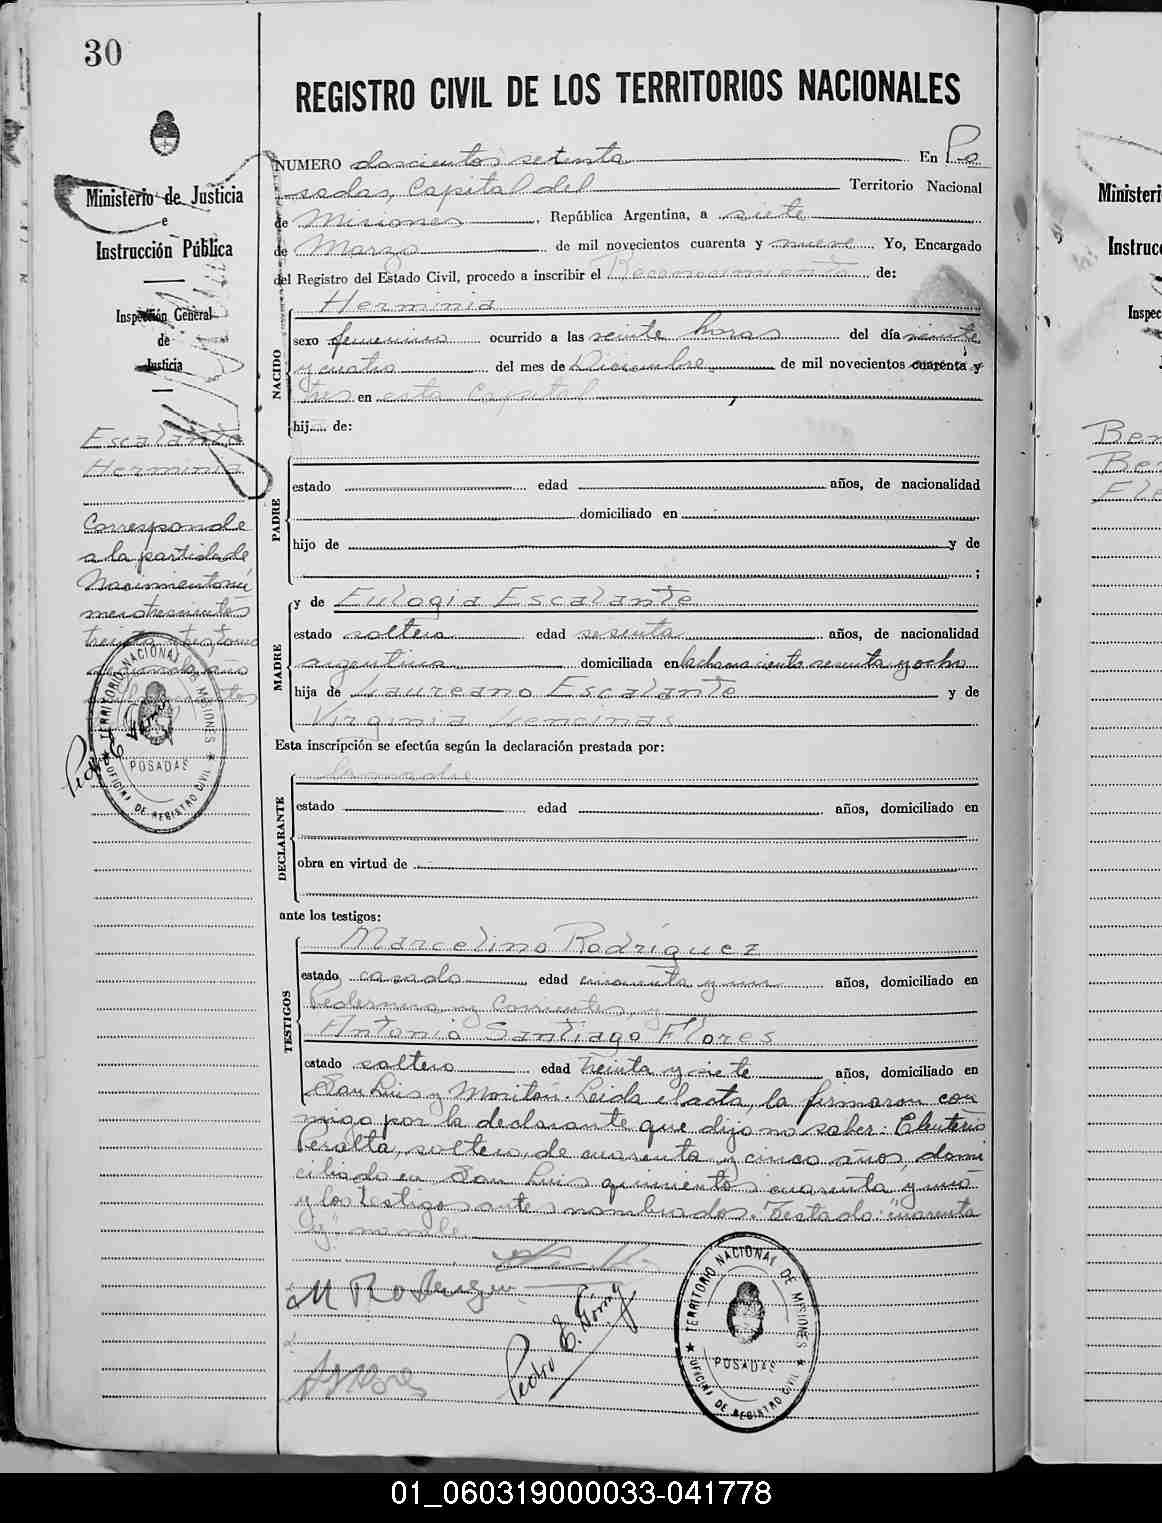 30
REGISTRO CIVIL DE LOS TERRITORIOS NACIONALES
Ministerio de Justicia
e
Instrucción Pública
Inspección General
de
Justicia
Escalante
Herminia
Corresponde
a la partida de
Nacimiento nú
mero trescientos
treinta y tres, tomo
año
Pedro E. Göring
TERRITORIO NACIONAL DE MISIONES
POSADAS
OFICINA DE REGISTRO CIVIL
NUMERO doscientos setenta En Po
sadas, Capital del Territorio Nacional
de Misiones, República Argentina, a siete
de Marzo de mil novecientos cuarenta y nueve Yo, Encargado
del Registro del Estado Civil, procedo a inscribir el Reconocimiento de:
NACIDO
Herminia
sexo femenino ocurrido a las veinte horas del día veinte
y cuatro del mes de Diciembre de mil novecientos cuarenta y
tres en esta Capital
hij de:
PADRE
estado edad años, de nacionalidad
domiciliado en
hijo de y de
;
MADRE
y de Eulogia Escalante
estado soltera edad sesenta años, de nacionalidad
argentina domiciliada en Chamaciento sesenta y ocho
hija de Laureano Escalante y de
Virginia Lencinas
Esta inscripción se efectúa según la declaración prestada por:
DECLARANTE
la madre
estado edad años, domiciliado en
obra en virtud de
ante los testigos:
TESTIGOS
Marcelino Rodríguez
estado casado edad cincuenta y un años, domiciliado en
Pedernera y Corrientes, y
Antonio Santiago Flores
estado soltero edad treinta y siete años, domiciliado en
San Luis y Moritán. Leida el acta, la firmaron con
migo por la declarante que dijo no saber: Eleuterio
Peralta, soltero, de cuarenta y cinco años, domi
ciliado en San Luis quinientos cuarenta y uno
y los testigos antes nombrados. Testado: "cuarenta
y" no vale.
M Rodriguez
Pedro E. Göring
TERRITORIO NACIONAL DE MISIONES
POSADAS
OFICINA DE REGISTRO CIVIL
Ministeri
Instrucc
Inspec
Ben
Ber
Ele
01_060319000033-041778